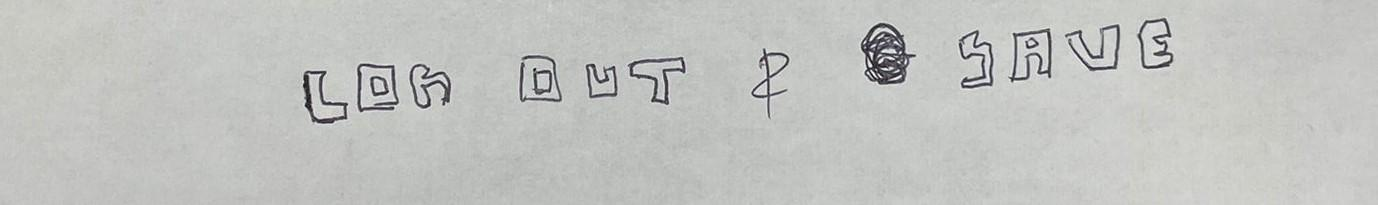 LOG OUT & SAVE